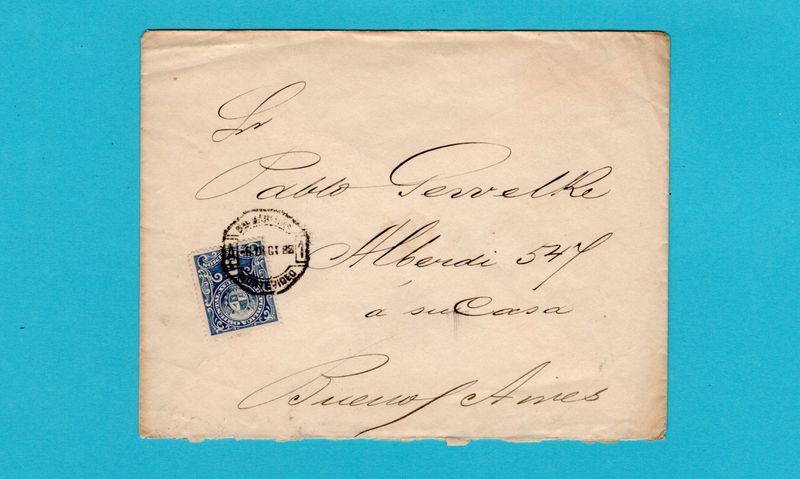 Sr
Pablo Pewelke
Alberdi 547
á su Casa
Buenos Aires
MONTEVIDEO